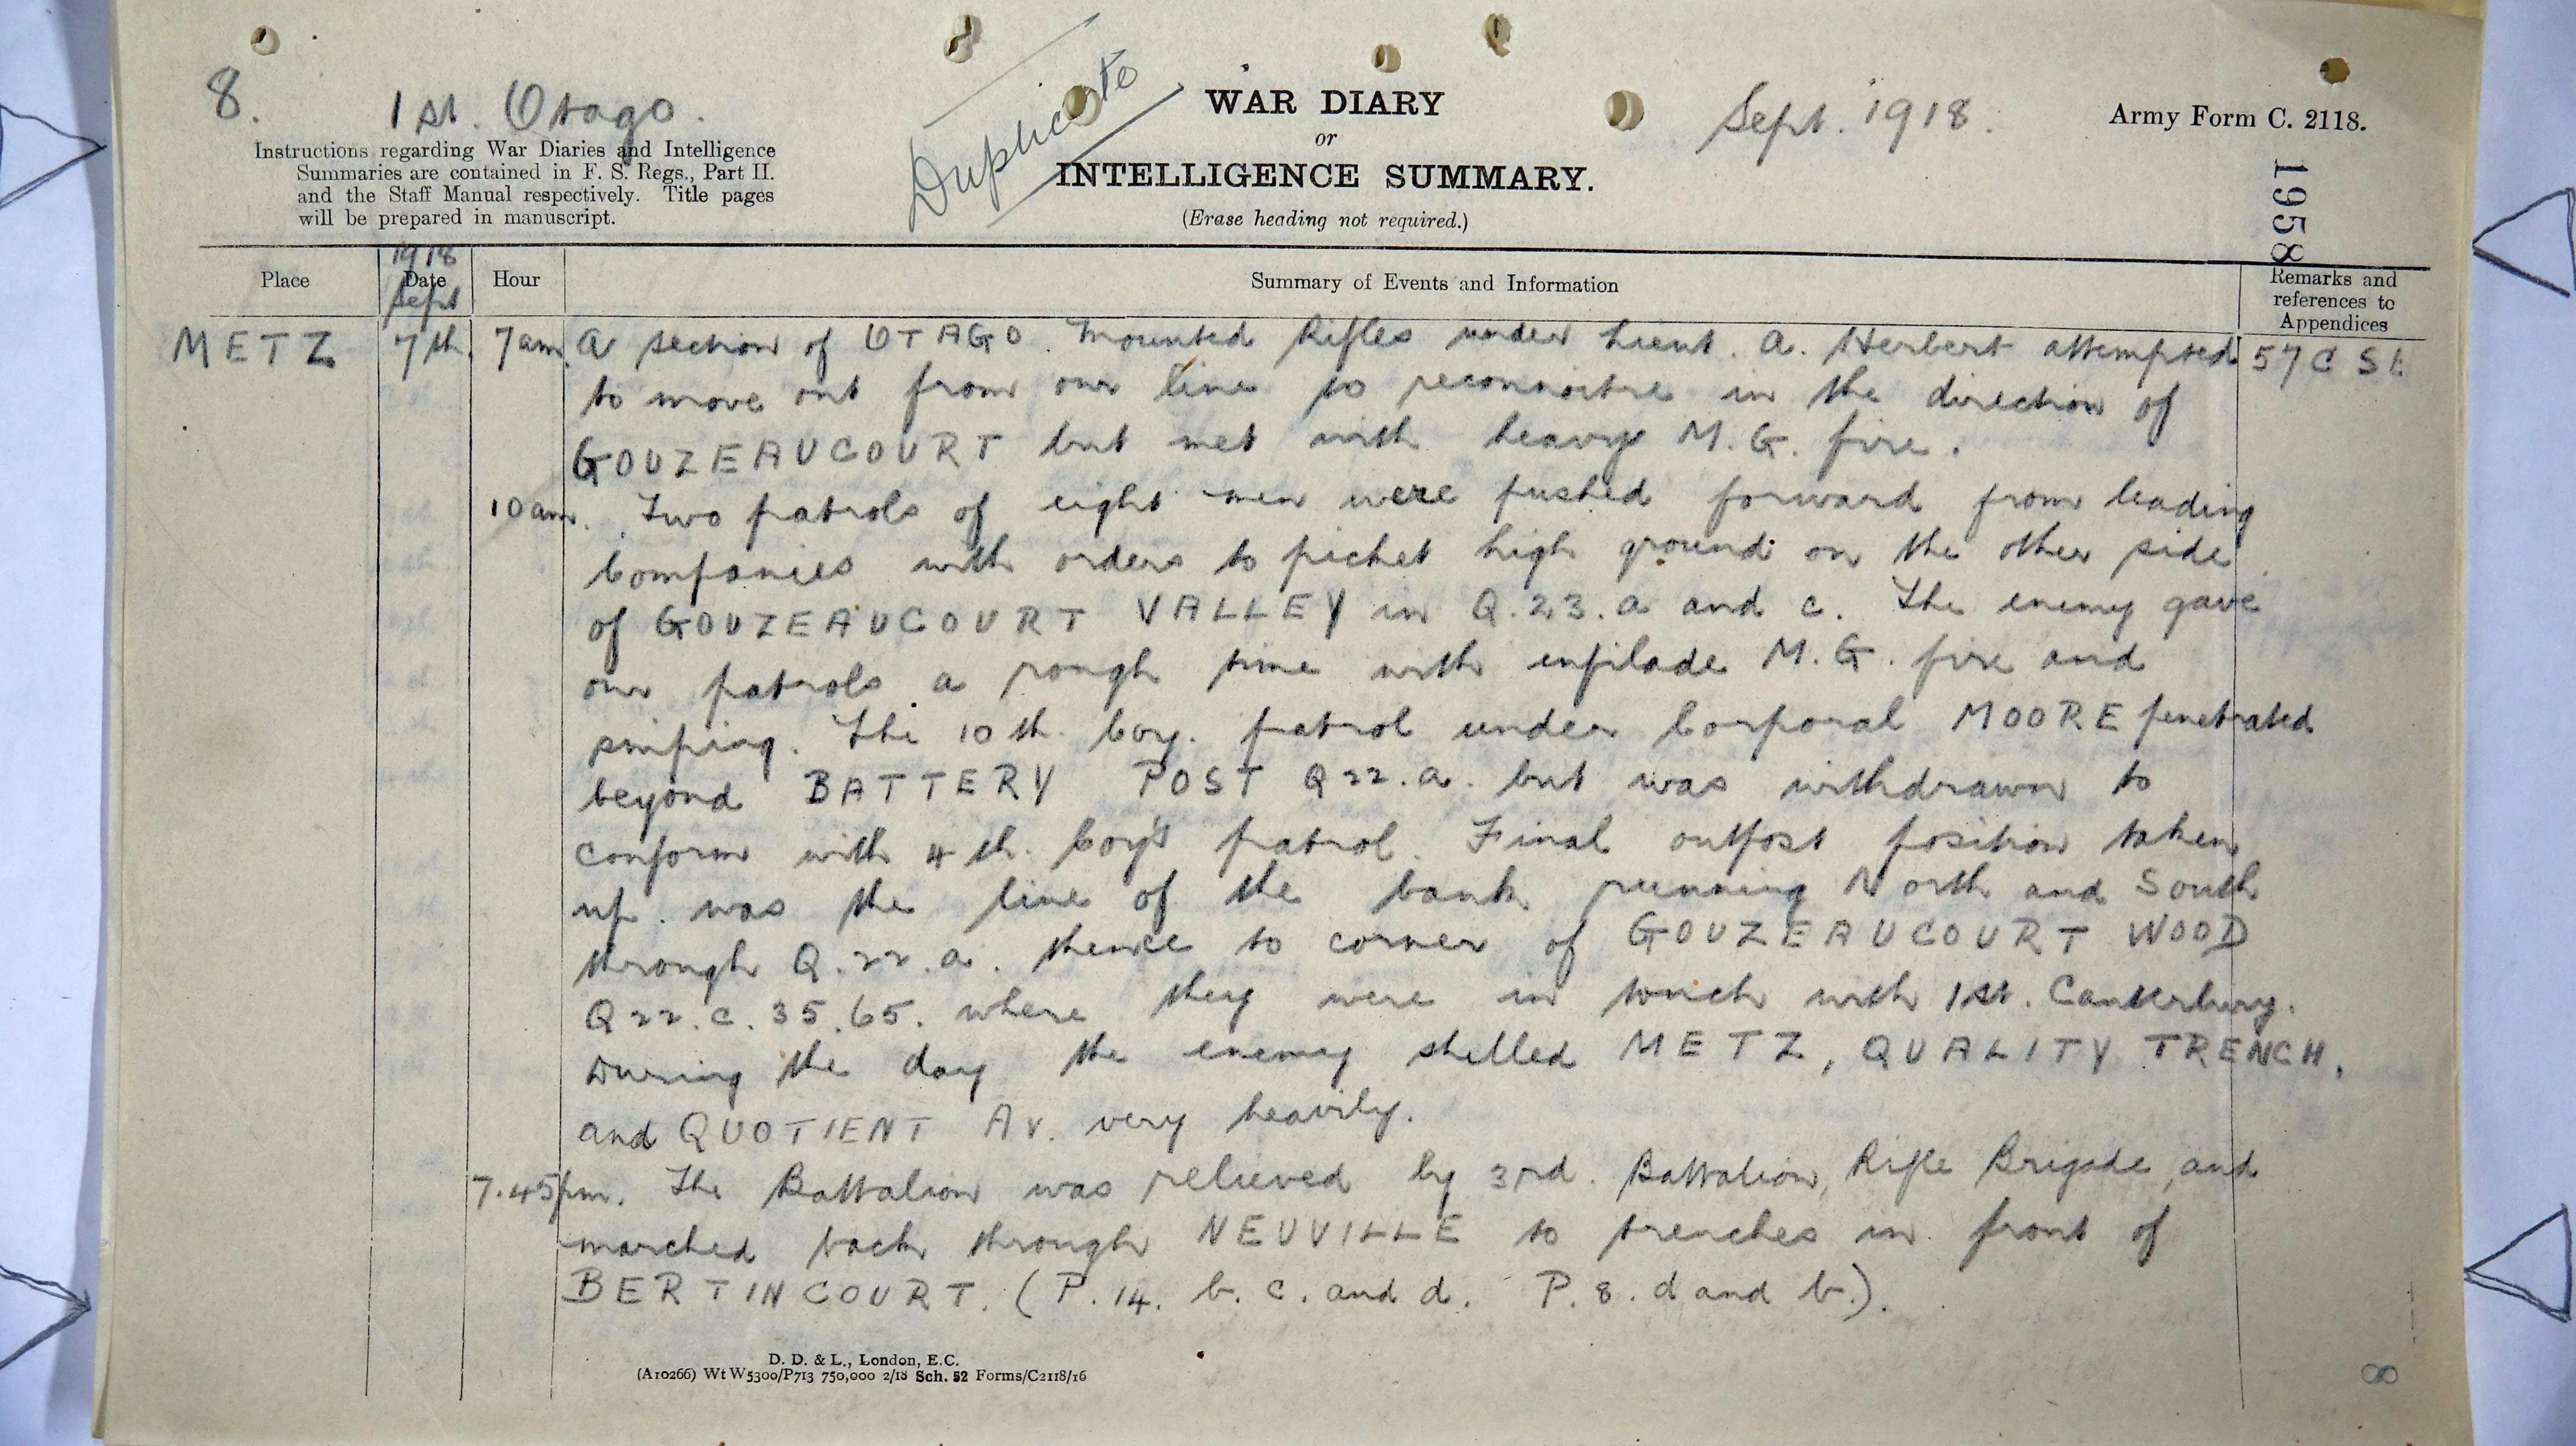 8.
1st. Otago.
Duplicate
WAR DIARY
or
INTELLIGENCE SUMMARY.
(Erase heading not required.)
Sept. 1918.
Army Form C. 2118.
1958
Instructions regarding War Diaries and Intelligence
Summaries are contained in F. S. Regs., Part II.
and the Staff Manual respectively. Title pages
will be prepared in manuscript.
1918
Place Date Hour Summary of Events and Information Remarks and
references to
Appendices
Sept
METZ 7th. 7am. A section of OTAGO. Mounted Rifles under Lieut. A. Herbert attempted 57C SE
to move out from our line to reconnoitre in the direction of
GOUZEAUCOURT but met with heavy M.G. fire.
10am. Two patrols of eight men were pushed forward from leading
Companies with orders to picket high ground on the other side
of GOUZEAUCOURT VALLEY in Q.23.a and c. The enemy gave
our patrols a rough time with enfilade M.G. fire and
sniping. The 10th. Coy. patrol under Corporal MOORE penetrated
beyond BATTERY POST Q22.a. but was withdrawn to
conform with 4th. Coy's patrol. Final outpost position taken
up. was the line of the bank running North and South
through Q.22.a. thence to corner of GOUZEAUCOURT WOOD
Q22.c.35.65. where they were in touch with 1st. Canterbury.
During the day the enemy shelled METZ, QUALITY TRENCH,
and QUOTIENT AV. very heavily.
7.45pm. The Battalion was relieved by 3rd. Battalion, Rifle Brigade, and
marched back through NEUVILLE to trenches in front of
BERTINCOURT. (P.14. b. c. and d. P.8. d and b.).
D. D. & L., London, E.C.
(A10266) Wt W5300/P713 750,000 2/18 Sch. 52 Forms/C2118/16
8